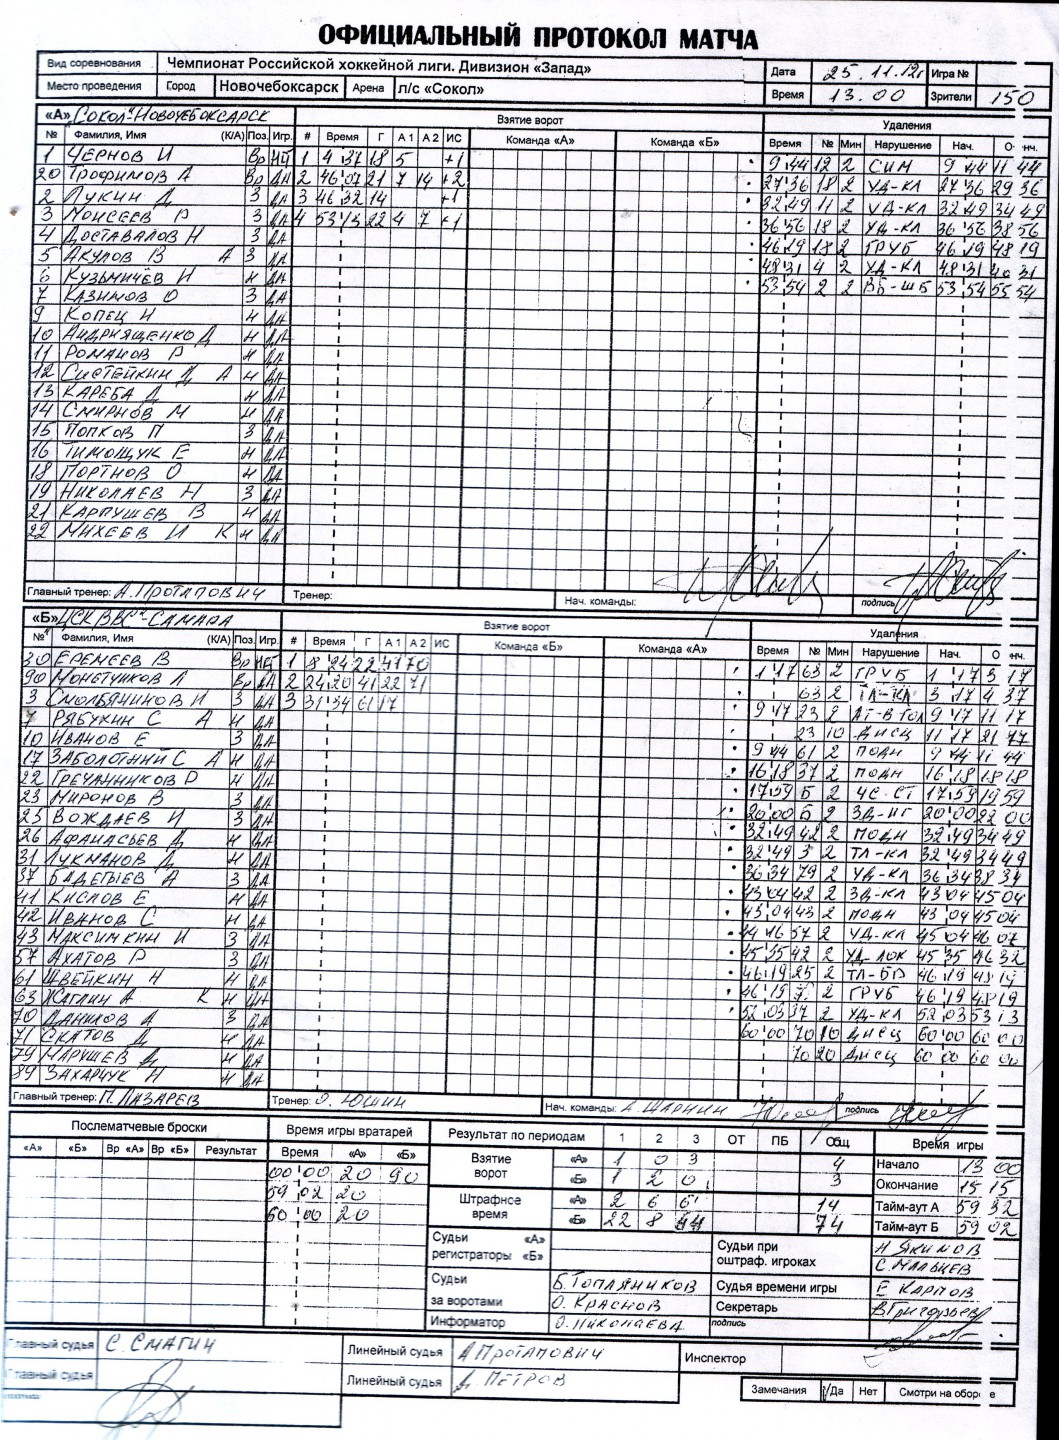 ОФИЦИАЛЬНЫЙ ПРОТОКОЛ МАТЧА
Вид соревнования Чемпионат Российской хоккейной лиги. Дивизион «Запад» Дата 25.11.12г Игра №
Место проведения Город Новочебоксарск Арена л/с «Сокол» Время 13.00 Зрители 150
«А» Сокол-Новочебоксарск Взятие ворот Удаления
№ Фамилия, Имя (К/А) Поз. Игр. # Время Г А1 А2 ИС Команда «А» Команда «Б» Время № Мин Нарушение Нач.
1 Чернов И Вр 1 4 37 18 5 +1 9 44 12 2 СИМ 9 44 11 44
20 Трофимов А Вр ДА 2 46 07 21 7 14 +2 27 36 18 2 УД-КЛ 27 36 29 36
2 Лукин Д З ДА 3 46 32 14 +1 32 49 11 2 УД-КЛ 32 49 34 49
3 Моисеев Р З ДА 4 53 13 22 4 7 +1 36 56 18 2 УД-КЛ 36 56 38 56
4 Доставалов Н З ДА 46 19 18 2 ГРУБ 46 19 48 19
5 Акулов В А З ДА 48 31 4 2 УД-КЛ 48 31
6 Кузьмичёв И Н ДА 53 54 2 2 ВБ-ШБ 53 54 55 54
7 Казимов О З ДА
9 Копец И Н ДА
10 Андрященко Д Н ДА
11 Романов Р Н ДА
12 Систейкин Д А Н ДА
13 Кареба Д Н ДА
14 Смирнов М Н ДА
15 Попков П З ДА
16 Тимощук Е Н ДА
18 Портнов О Н ДА
19 Николаев Н З ДА
21 Карпушев В Н ДА
22 Михеев И К Н ДА
Главный тренер: А. Протапович Тренер: Нач. команды: подпись
«Б» ЦСК ВВС-Самара Взятие ворот Удаления
№ Фамилия, Имя (К/А) Поз. Игр. # Время Г А1 А2 ИС Команда «Б» Команда «А» Время № Мин Нарушение Нач.
30 Еремеев В Вр 1 8 24 22 41 70 1 17 63 2 ГРУБ 1 17 3 17
90 Монетчиков Л Вр ДА 2 24 20 41 22 71 63 2 3 17 4 37
3 Смольянинов И З ДА 3 31 34 61 17 9 17 23 2 АТ-В ГОЛ 9 17 11 17
7 Рябухин С А Н ДА 23 10 ДИСЦ 11 17 21 17
10 Иванов Е З ДА 9 44 61 2 ПОДН 9 44 11 44
17 Заболотний С А Н ДА 16 18 37 2 ПОДН 16 18 18 18
22 Гречанников Р Н ДА 17 59 Б 2 ЧС-СТ 17 59 19 59
23 Миронов В З ДА 20 00 Б 2 20 00 22 00
25 Вождаев И З ДА 32 49 42 2 ПОДН 32 49 34 49
26 Афанасьев Д Н ДА 32 49 3 2 ТЛ-КЛ 32 49 34 49
31 Лукманов Д Н ДА 36 34 79 2 УД-КЛ 36 34 38 34
37 Бадертьев А З ДА 43 04 42 2 ЗД-КЛ 43 04 45 04
41 Кислов Е Н ДА 43 04 43 2 ПОДН 43 04 45 04
42 Иванов С Н ДА 44 16 57 2 УД-КЛ 45 04 46 07
43 Максимкин И З ДА 45 35 42 2 УД-ЛОК 45 35 46 32
57 Ахатов Р З ДА 46 19 25 2 ТЛ-БР 46 19 48 19
61 Швейкин Н Н ДА 46 19 2 ГРУБ 46 19 48 19
63 Жаглин А К Н ДА 52 03 37 2 УД-КЛ 52 03 53 13
70 Данилов А З ДА 60 00 70 10 ДИСЦ 60 00 60 00
71 Скатов Д Н ДА 70 20 ДИСЦ 60 00 60 00
79 Марушев Д Н ДА
89 Захарчук Н Н ДА
Главный тренер: П. Лазарев Тренер: О. Юшин Нач. команды: А. Шарнин подпись
Послематчевые броски Время игры вратарей Результат по периодам 1 2 3 ОТ ПБ Общ Время игры
«А» «Б» Вр «А» Вр «Б» Результат Время «А» «Б» Взятие ворот «А» 1 0 3 4 Начало 13 00
00 00 20 90 «Б» 1 2 0 3 Окончание 15 15
59 02 20 Штрафное время «А» 2 6 6 14 Тайм-аут А 59 32
60 00 20 «Б» 22 8 44 74 Тайм-аут Б 59 02
Судьи регистраторы «А» «Б» Судьи при оштраф. игроках Н Якимов
С. Мальцев
Судьи за воротами Б. Топляников Судья времени игры Е Карпов
О. Краснов Секретарь В. Григорьев
Информатор О. Николаева подпись
Главный судья С. Смагин Линейный судья А Протапович Инспектор
Главный судья Линейный судья Д. Петров
Замечания Да Нет Смотри на обороте